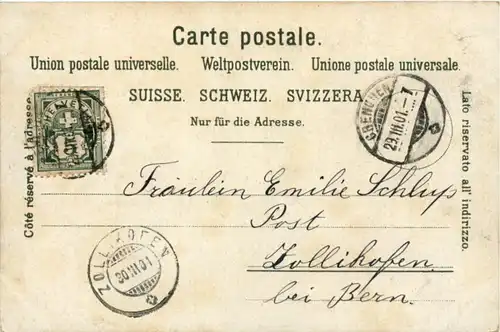 Carte postale.
Union postale universelle. Weltpostverein. Unione postale universale.
SUISSE. SCHWEIZ. SVIZZERA
Nur für die Adresse.
Côté réservé à l'adresse.
Lato riservato all' indirizzo.
5
GRENCHEN
29.III.01.-7
Fräulein Emilie Schlup
Post
Zollikofen
bei Bern.
ZOLLIKOFEN
30.III.01